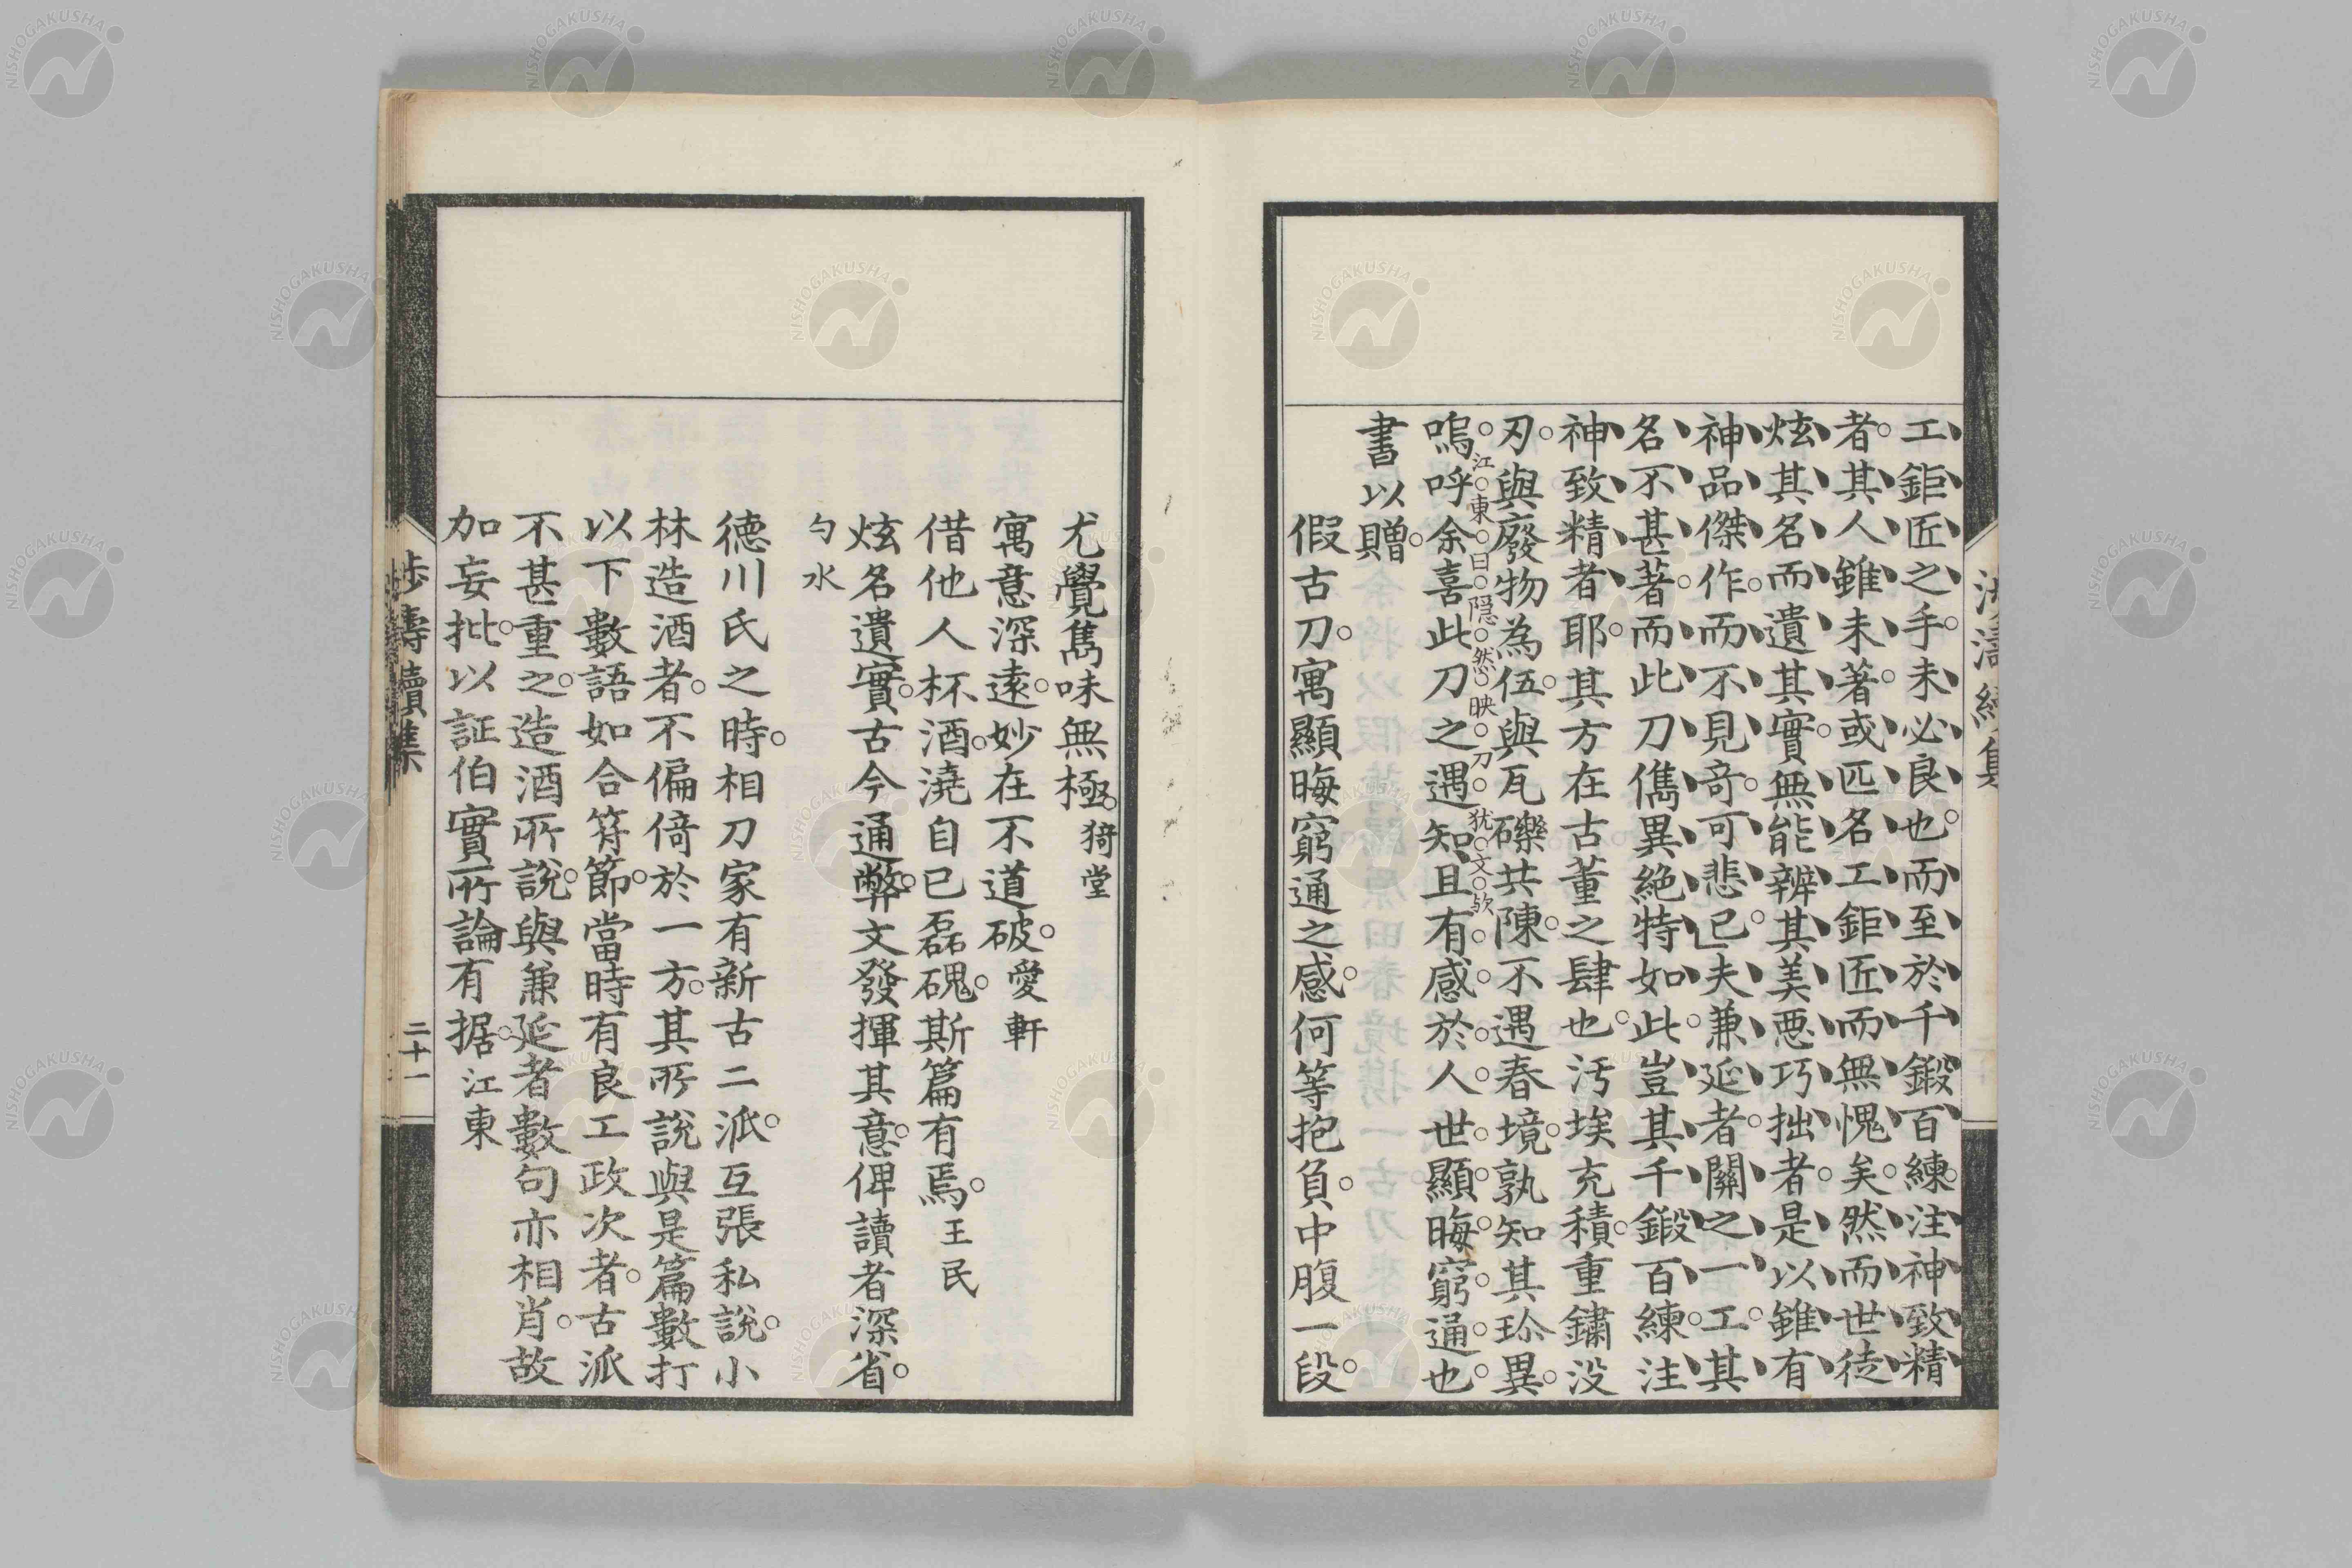 工鉅匠之手未必良也而至於千鍛百練注神致精
者其人雖未著或匹名工鉅匠而無愧矣然而世徒
炫其名而遺其實無能辨其美惡巧拙者是以雖有
神品傑作而不見奇可悲已夫兼延者關之一工其
名不甚著而此刀儁異絕特如此豈其千鍛百練注
神致精者耶其方在古董之肆也汚埃充積重鏽没
刃與廢物為伍與瓦礫共陳不遇春境孰知其珍異
江東曰隱然映刀猶文歟
嗚呼余喜此刀之遇知且有感於人世顯晦窮通也
書以贈
假古刀寓顯晦窮通之感何等抱負中腹一段
尤覺雋味無極 猗堂
寓意深遠妙在不道破 愛軒
借他人杯酒澆自己磊磈斯篇有焉 王民
炫名遺實古今通弊文發揮其意俾讀者深省
勺水
德川氏之時相刀家有新古二派互張私說小
林造酒者不偏倚於一方其所說與是篇數打
以下數語如合符節當時有良工政次者古派
不甚重之造酒所說與兼延者數句亦相肖故
加妄批以証伯實所論有据 江東
二十一
NISHOGAKUSHA